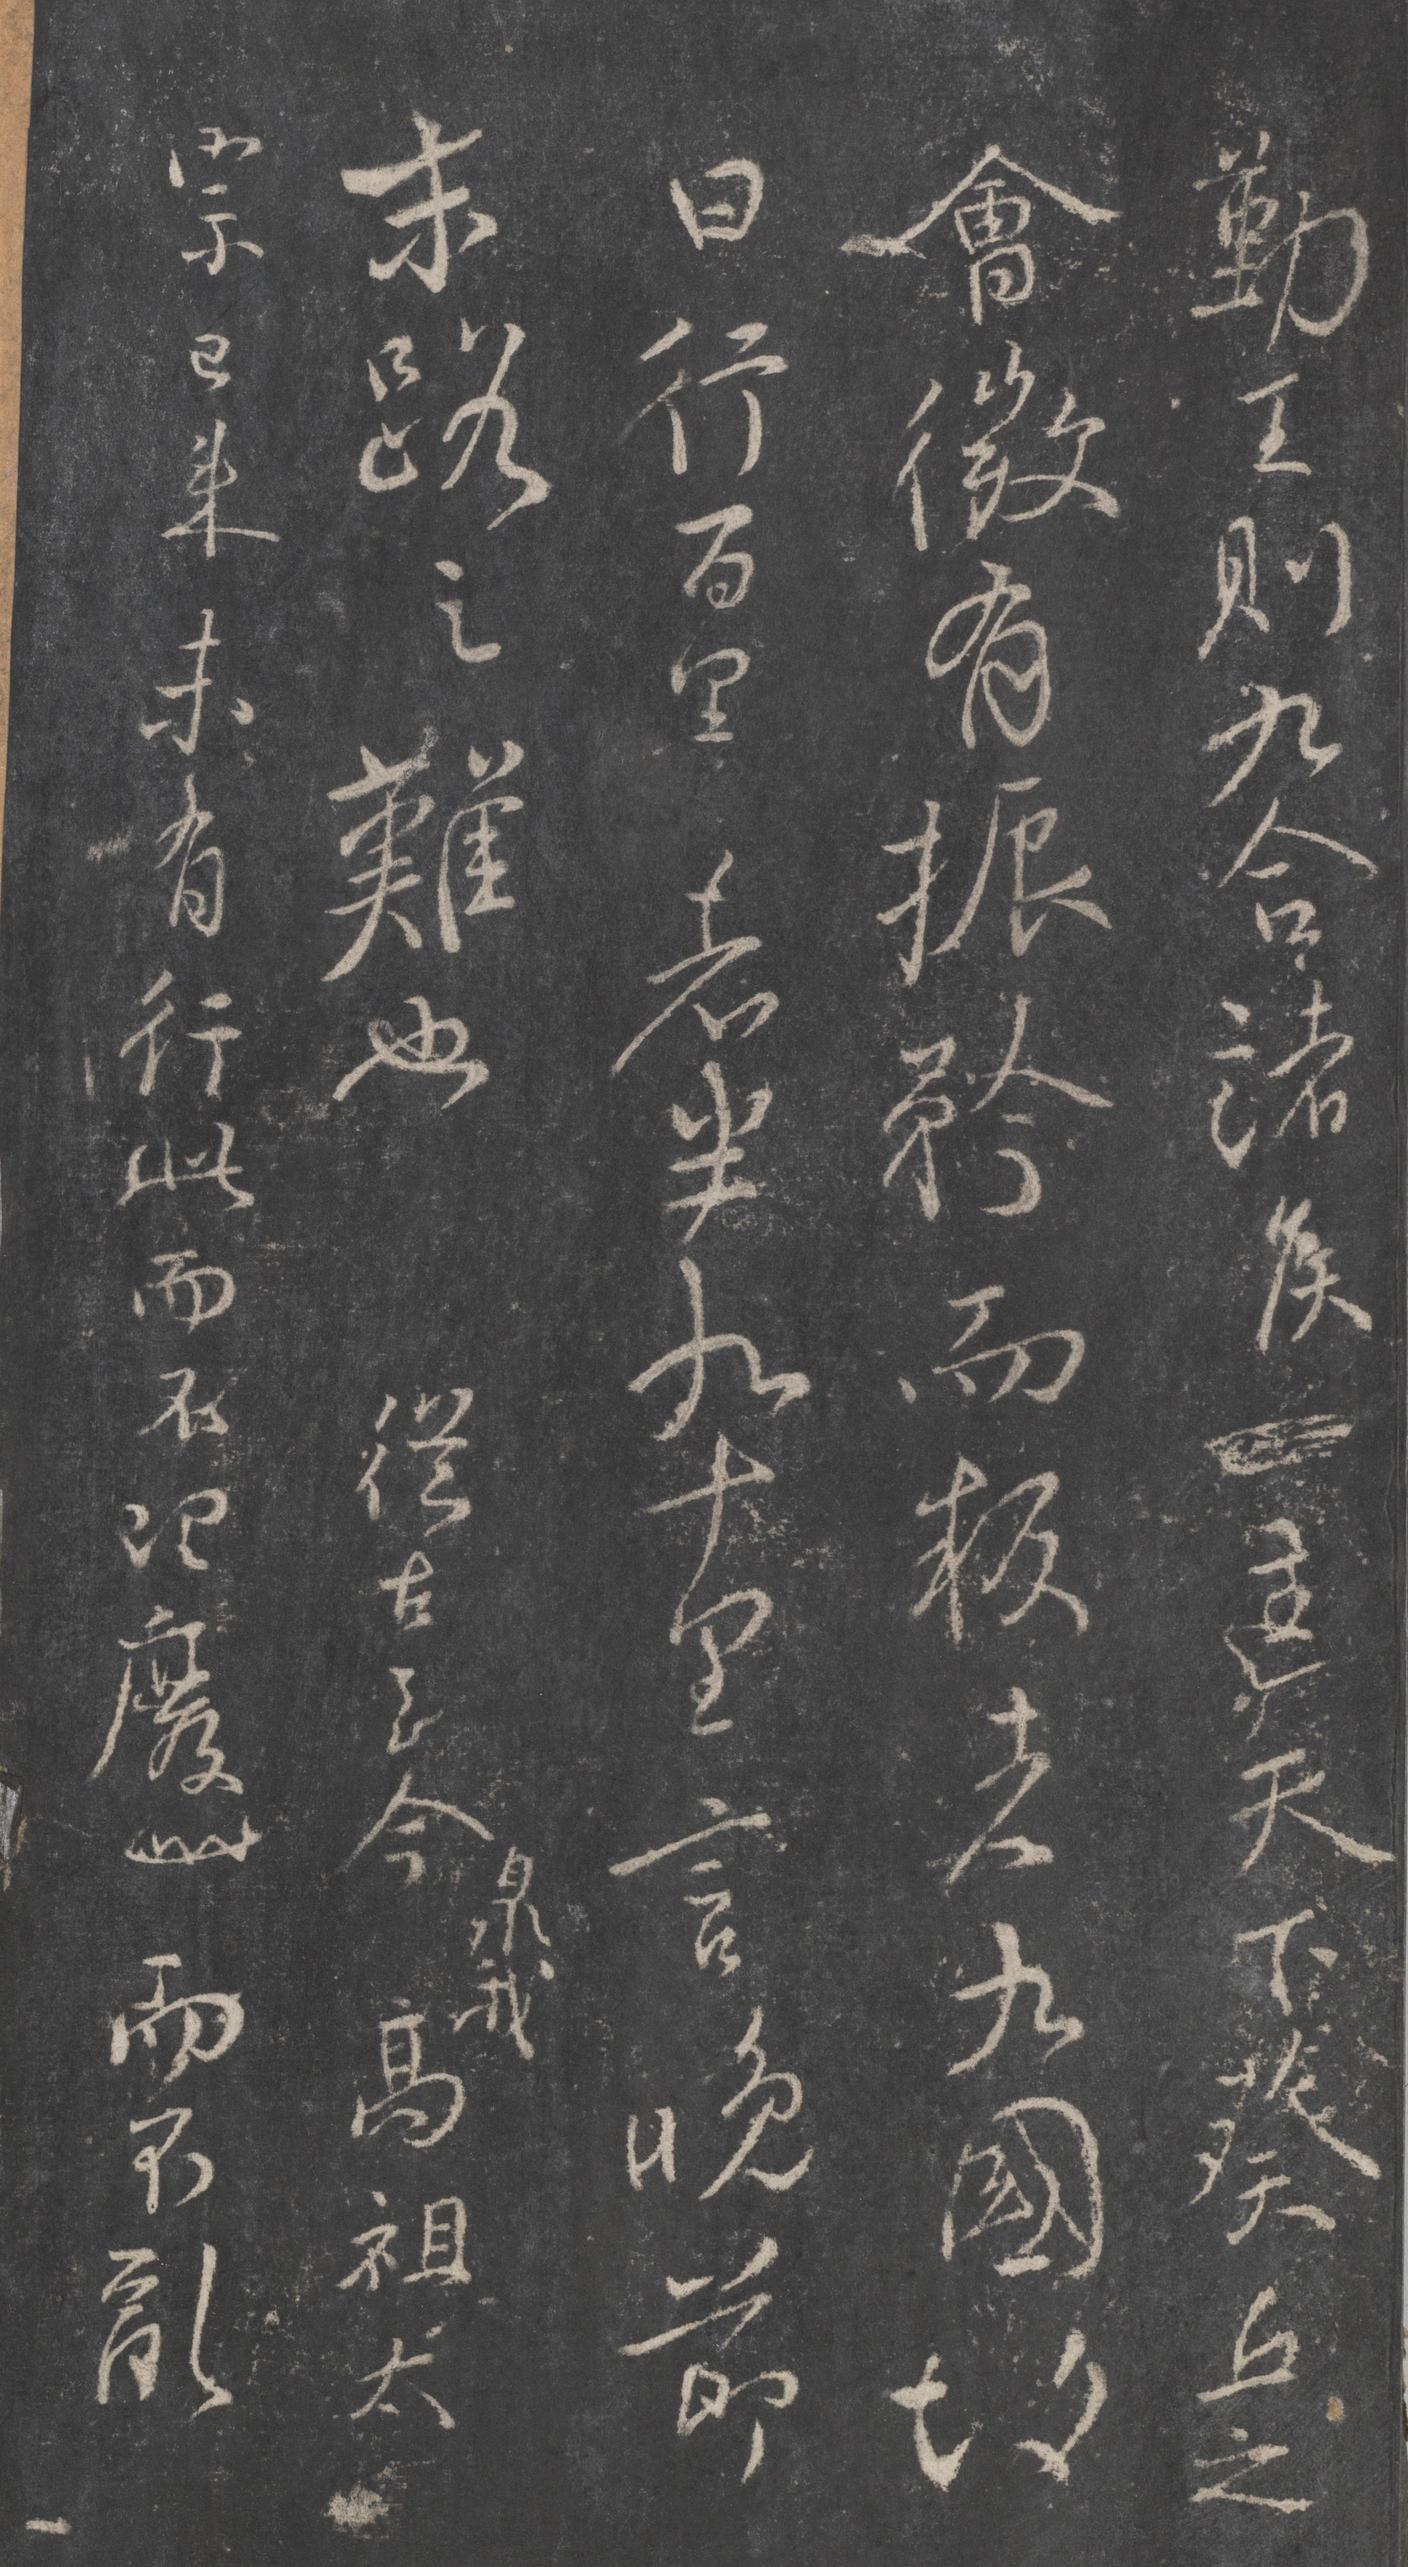 勤王則九合諸侯一匡天下葵丘之
會微有振矜而叛者九國故
曰行百里者半九十里言晚節
末路之難也從古至今
泉我
高祖太
宗已來未有行此而不理廢此而不亂